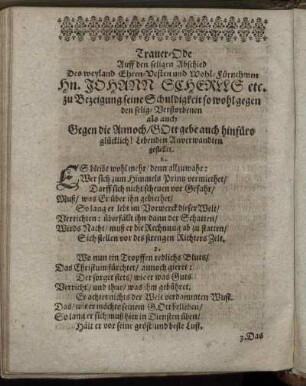 Trauer-Ode
Auff den seligen Abschied
Des weyland Ehren-Vesten und Wohl-Fürnehmen
Hn. JOHANN SCHERLLS etc.
zu Bezeigung seine Schuldigkeit so wohl gegen
den selig-Verstorbenen
als auch
Gegen die Annoch/ GOtt gebe auch hinfüro
glücklich! Lebenden Anverwandten
gestellet.
1.
ES bleibt wohl mehr/ denn allzuwahr:
Wer sich zum Himmels Printz vermiethet/
Darff sich nicht scheuen vor Gefahr/
Muß/ was Er über ihn gebiethet/
So lang er lebt im Vorwerck dieser Welt/
Verrichten: überfällt ihn dann der Schatten/
Wirds Nacht/ muß er die Rechnung ab zu statten/
Sich stellen vor des strengen Richters Zelt.
2.
Wo nun ein Tropffen redlichs Bluts/
Das Christum fürchtet/ annoch gieret:
Der sorget stets/ wie er was Guts
Verricht/ und thue/ was ihm gebühret.
Er achtet nichts der Welt verdammten Wust.
Das/ wie er möchte seinem GOtt belieben/
So lang er sich muß hier in Diensten üben/
Hält er vor seine gröst und beste Lust.
3. Das